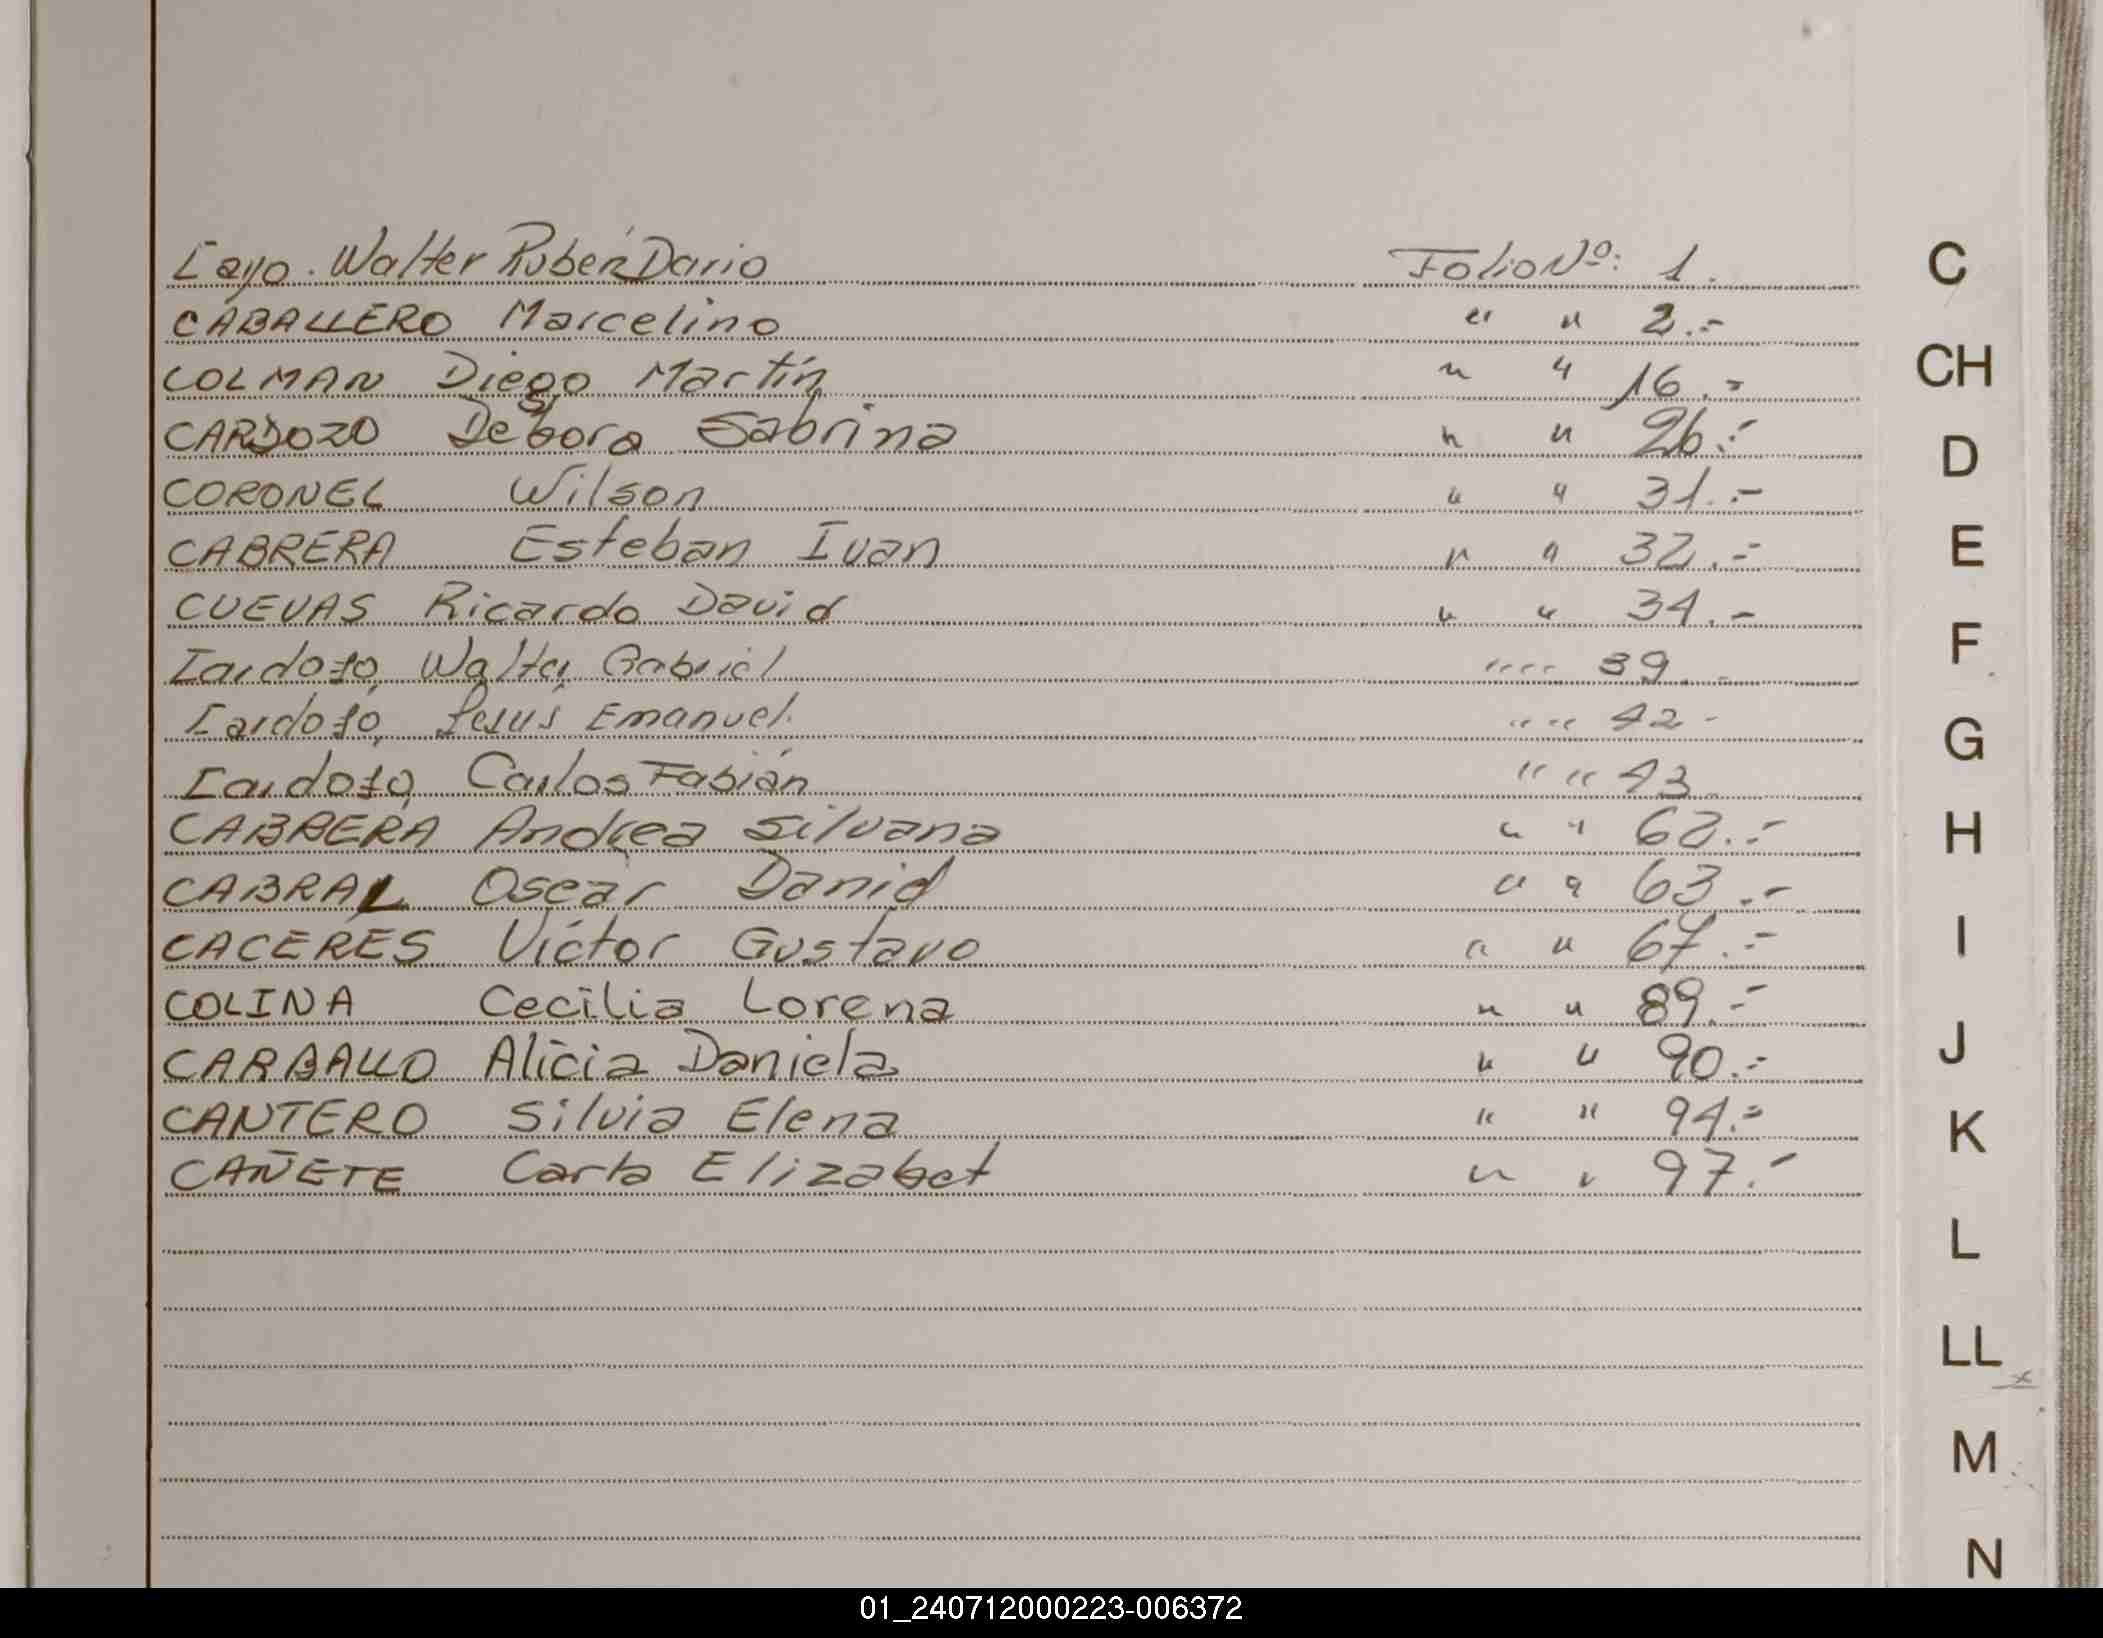 Cayo. Walter Rubén Dario Folio Nº: 1.
CABALLERO Marcelino " " 2.-
COLMAN Diego Martín " " 16.-
CARDOZO Débora Sabrina " " 26.-
CORONEL Wilson " " 31.-
CABRERA Esteban Ivan " " 32.-
CUEVAS Ricardo David " " 34.-
Cardozo, Walter Gabriel " " 39.-
Cardozo, Jesús Emanuel. " " 42-
Cardozo, Carlos Fabián " " 43.
CABRERA Andrea Silvana " " 62.-
CABRAL Oscar David " " 63.-
CACERES Víctor Gustavo " " 67.-
COLINA Cecilia Lorena " " 89.-
CARBALLO Alicia Daniela " " 90.-
CANTERO Silvia Elena " " 94.-
CAÑETE Carla Elizabet " " 97.-
C
CH
D
E
F
G
H
I
J
K
L
LL
M
N
01_240712000223-006372